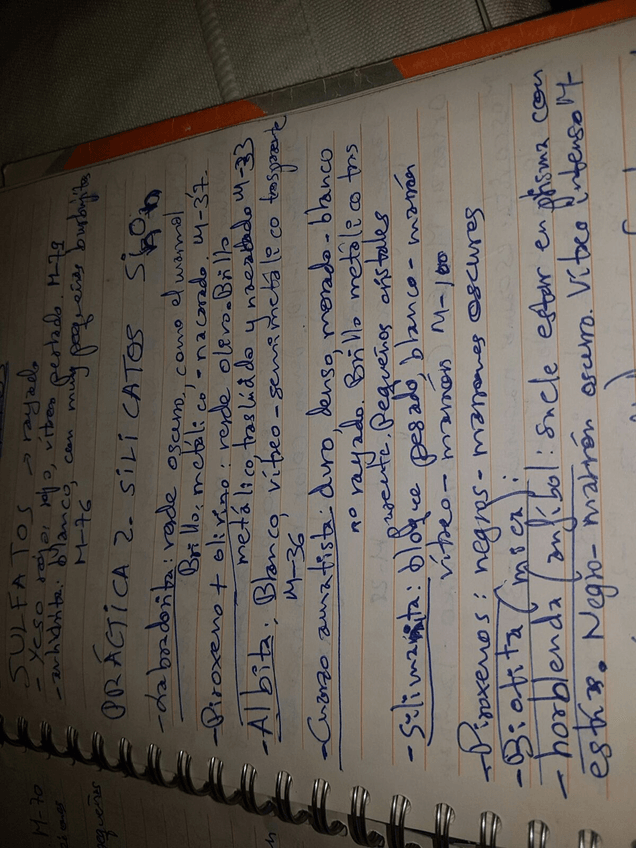 SULFATOS → rayado
- Yeso rojo: rojo, vítreo pesado. M-79
- anhidrita: blanco, con muy pequeñas burbujitas
M-76
PRÁCTICA 2.- SILICATOS
- Labradorita: verde oscuro, como el mármol
Brillo: metálico, -nacarado. M-37.
- Piroxeno + olivino: verde olivo. Brillo
metálico traslúcido y nacarado M-33
- Albita: Blanco, vítreo - semimetálico trasparente
M-36
- Cuarzo amatista: duro, denso, morado-blanco
no rayado. Brillo metálico tras
parente. Pequeños cristales
- Silimanita: bloque pesado blanco-marrón
vítreo-marrón M-100
- Piroxenos: negros-marrones oscuros
- Biotita (mica):
- horblenda (anfíbol: suele estar en prisma con
estrías. Negro-marrón oscuro. Vítreo intenso M-
M-70